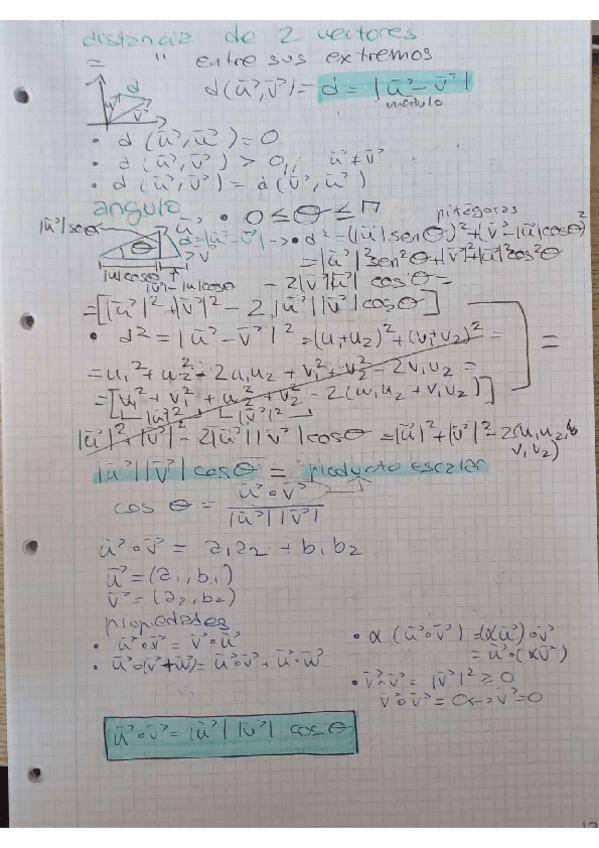 distancia de 2 vectores
= " entre sus extremos
d(u⃗,v⃗) = d = |u⃗ - v⃗|
módulo
d
u
v⃗
• d(u⃗,u⃗) = 0
• d(u⃗,v⃗) > 0,, u⃗ ≠ v⃗
• d(u⃗,v⃗) = d(v⃗,u⃗)
ángulo
• 0 ≤ θ ≤ π
pitágoras
|u⃗|senθ
u⃗
θ
d=|u⃗-v⃗|
v⃗
|u|cosθ
|v⃗|-|u|cosθ
→ • d² = (|u⃗| senθ)² + (v⃗-|u⃗|cosθ)²
= |u⃗|² sen²θ + |v⃗|² + |u⃗|² cos²θ
- 2|v⃗||u⃗| cosθ =
= [|u⃗|² + |v⃗|² - 2|u⃗||v⃗| cosθ]
• d² = |u⃗ - v⃗|² = (u₁+u₂)² + (v₁+v₂)² =
= u₁² + u₂² - 2u₁u₂ + v₁² + v₂² - 2v₁v₂ =
= [u₁² + v₁² + u₂² + v₂² - 2(u₁u₂ + v₁v₂)]
|u⃗|² |v⃗|²
=
|u⃗|² + |v⃗|² - 2|u⃗||v⃗| cosθ = |u⃗|² + |v⃗|² - 2(u₁u₂+
v₁v₂)
|u⃗||v⃗| cosθ = producto escalar
cos θ = u⃗∘v⃗ / |u⃗||v⃗|
u⃗∘v⃗ = a₁a₂ + b₁b₂
u⃗ = (a₁,b₁)
v⃗ = (a₂,b₂)
propiedades
• u⃗∘v⃗ = v⃗∘u⃗
• u⃗∘(v⃗+w⃗) = u⃗∘v⃗ + u⃗∘w⃗
• α(u⃗∘v⃗) = (αu⃗)∘v⃗
= u⃗∘(αv⃗)
• v⃗∘v⃗ = |v⃗|² ≥ 0
v⃗∘v⃗ = 0 ↔ v⃗ = 0
u⃗∘v⃗ = |u⃗||v⃗| cosθ